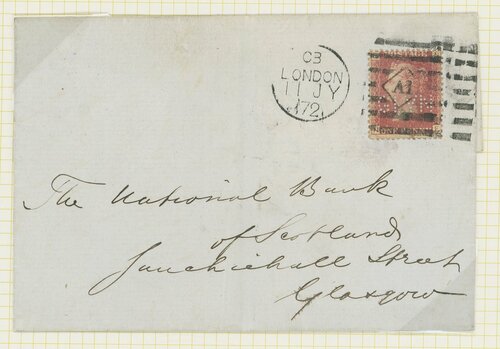 C3
LONDON
11 JY
72
The National Bank
of Scotland
Sauchiehall Street
Glasgow